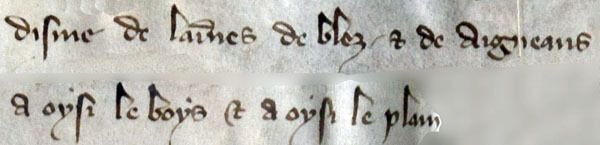 disme de laines de blez & de Aigneaus
a oysi le boys & a oysi le plain